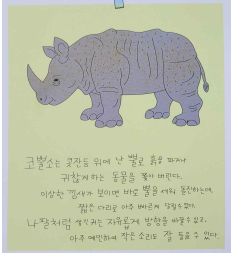 코뿔소는 콧잔등 위에 난 뿔로 흙을 파거나
귀찮게하는 동물을 쫓아 버린다.
이상한 낌새가 보이면 바로 뿔을 세워 돌진하는데,
짧은 다리로 아주 빠르게 달릴수있다.
나팔처럼 생긴귀는 자유롭게 방향을 바꿀수 있고,
아주 예민하여 작은 소리도 잘 들을 수 있다.